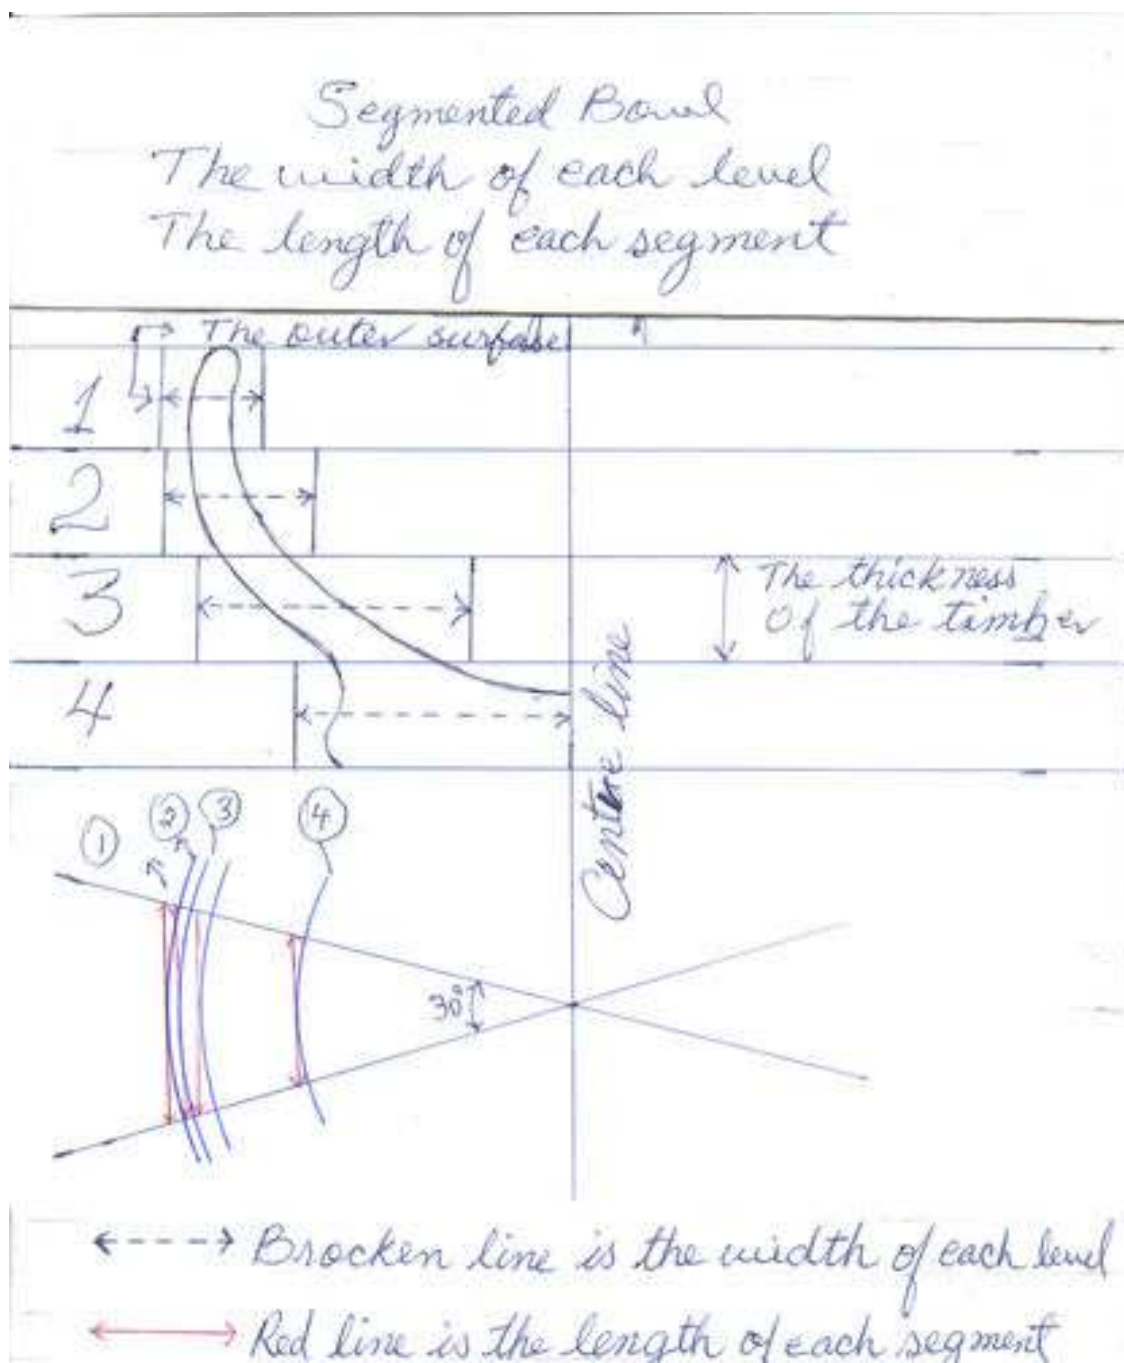 Segmented Bowl
The width of each level
The length of each segment
The outer surface
1
2
3
The thickness
of the timber
4
Centre line
1
2
3
4
30°
Brocken line is the width of each level
Red line is the length of each segment